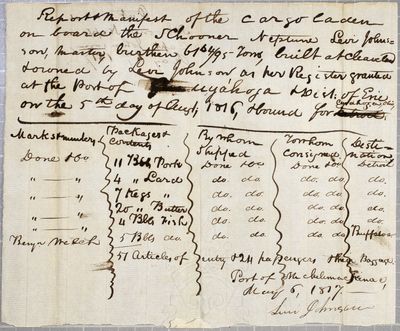 Report & Manifest of the cargo laden
on board the Schooner Neptune Levi John-
son, master burthen 65 /95 Tons built at Cleaveland
& owned by Levi Johnson as her Register granted
at the Port of Cuyahoga & Dist. of Erie
on the 5th day of Augt, 1816, & bound for
Marks & numbers Packages & Contents By whom Shipped To whom Consigned Desti-nations
Done & Co 11 Bbls Pork Done & Co Done & Co Detroit
" " 4 " Lard do. do. do. do. do.
" " 7 Kegs " do. do. do. do. do.
" " 20 " Butter do. do. do. do. do.
" " 4 Bbls Fish do. do. do. do. do.
Benjn Welch 5 Bbls do. do. do. do. do. Buffaloe
51 Articles of entry & 24 passengers & their Baggage.
Port of Michilimackinac
May 6, 1817
Levi Johnson